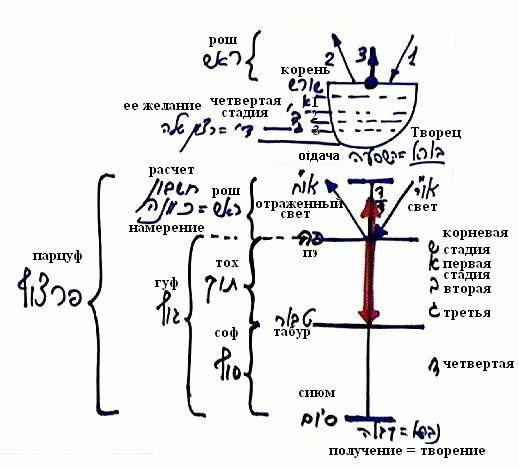 рош
ראש
2
3
1
корень
שורש
א 1
ב 2
ג 3
четвертая
стадия
ее желание
ד = רצון שלה
отдача
Творец
בורא = השפעה
расчет
חשבון
намерение
рош
ראש = כוונה
או"ח
отраженный
свет
או"י
свет
корневая
ש стадия
א первая
стадия
ב вторая
ג третья
ד четвертая
פה
пэ
парцуф
פרצוף
гуф
גוף
тох
תוך
табур
טבור
соф
סוף
сиюм
סיום
נברא = קבלה
получение = творение